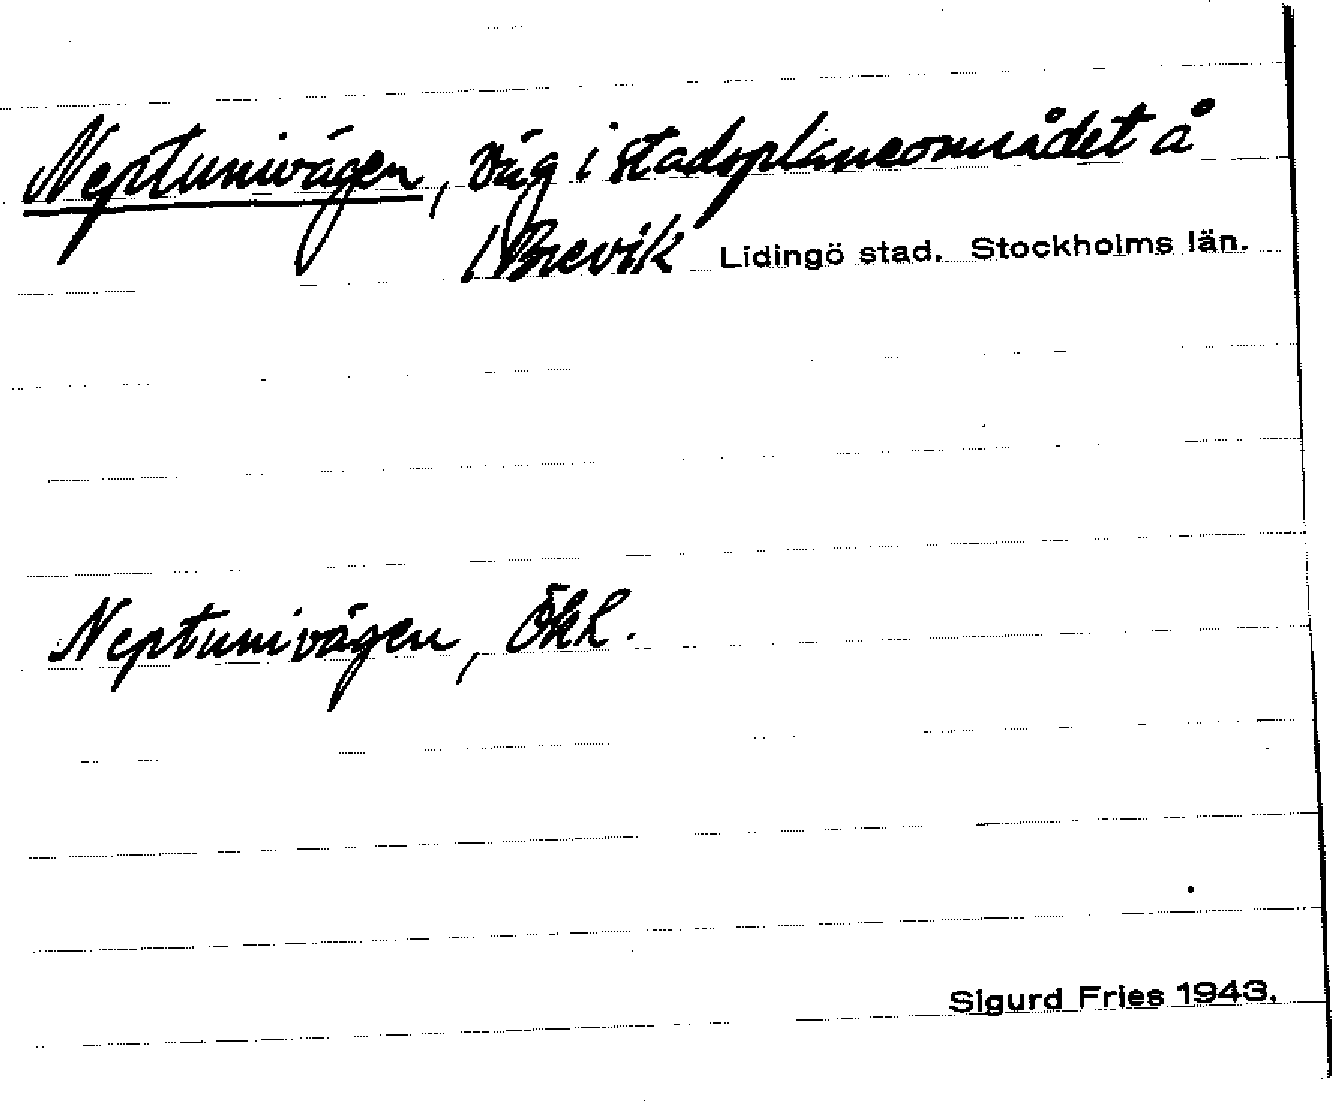 Neptunivägen, väg i stadsplaneområdet å
Brevik Lidingö stad. Stockholms län.
Neptunivägen, Ökk.
Sigurd Fries 1943.